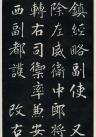 鎮經略副使又
除左威衛中郎將
轉右司禦率兼安
西副都護 改右